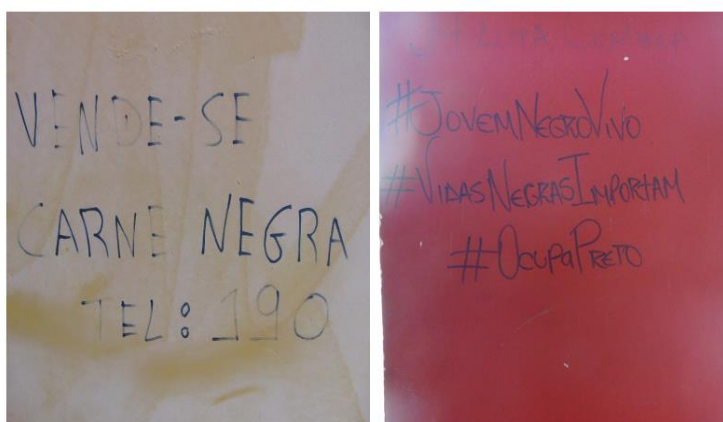 VENDE-SE
CARNE NEGRA
TEL: 190
A LUTA CONTINUA
#JOVEMNEGROVIVO
#VIDASNEGRASIMPORTAM
#OCUPAPRETO